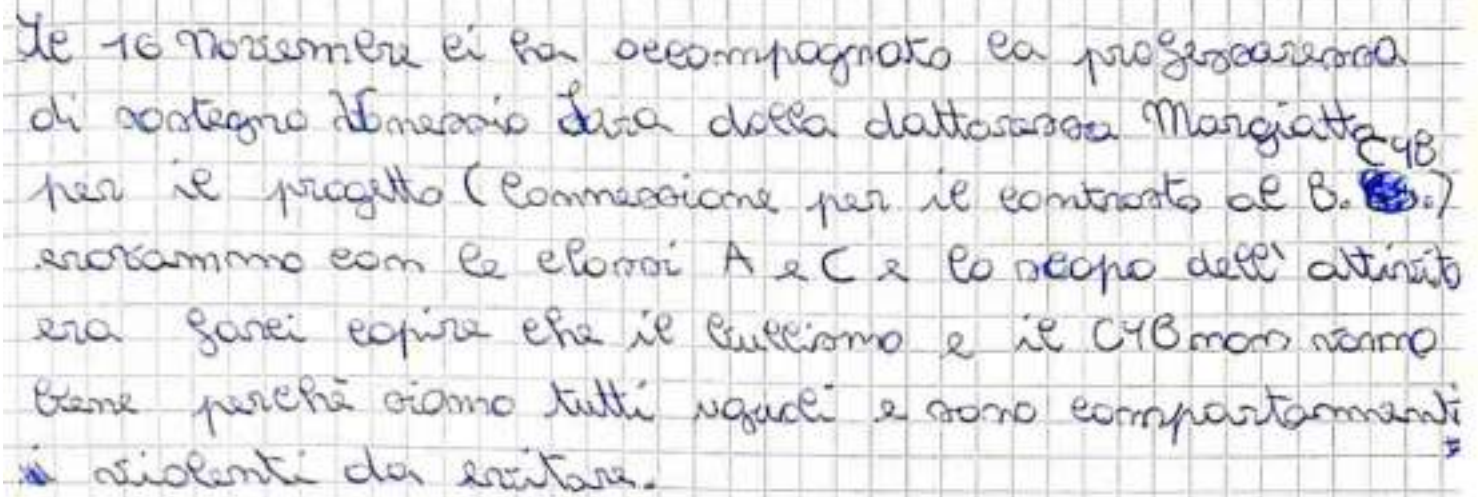 Il 16 Novembre ci ha accompagnato la professoressa
di sostegno Vonessio Sara dalla dottoressa Margiatta
per il progetto (Commessione per il contrasto al B. CYB.)
eravammo con le classi A e C e lo scopo dell' attività
era farci capire che il bullismo e il CYB non vanno
bene perchè siamo tutti uguali e sono comportamenti
violenti da evitare.